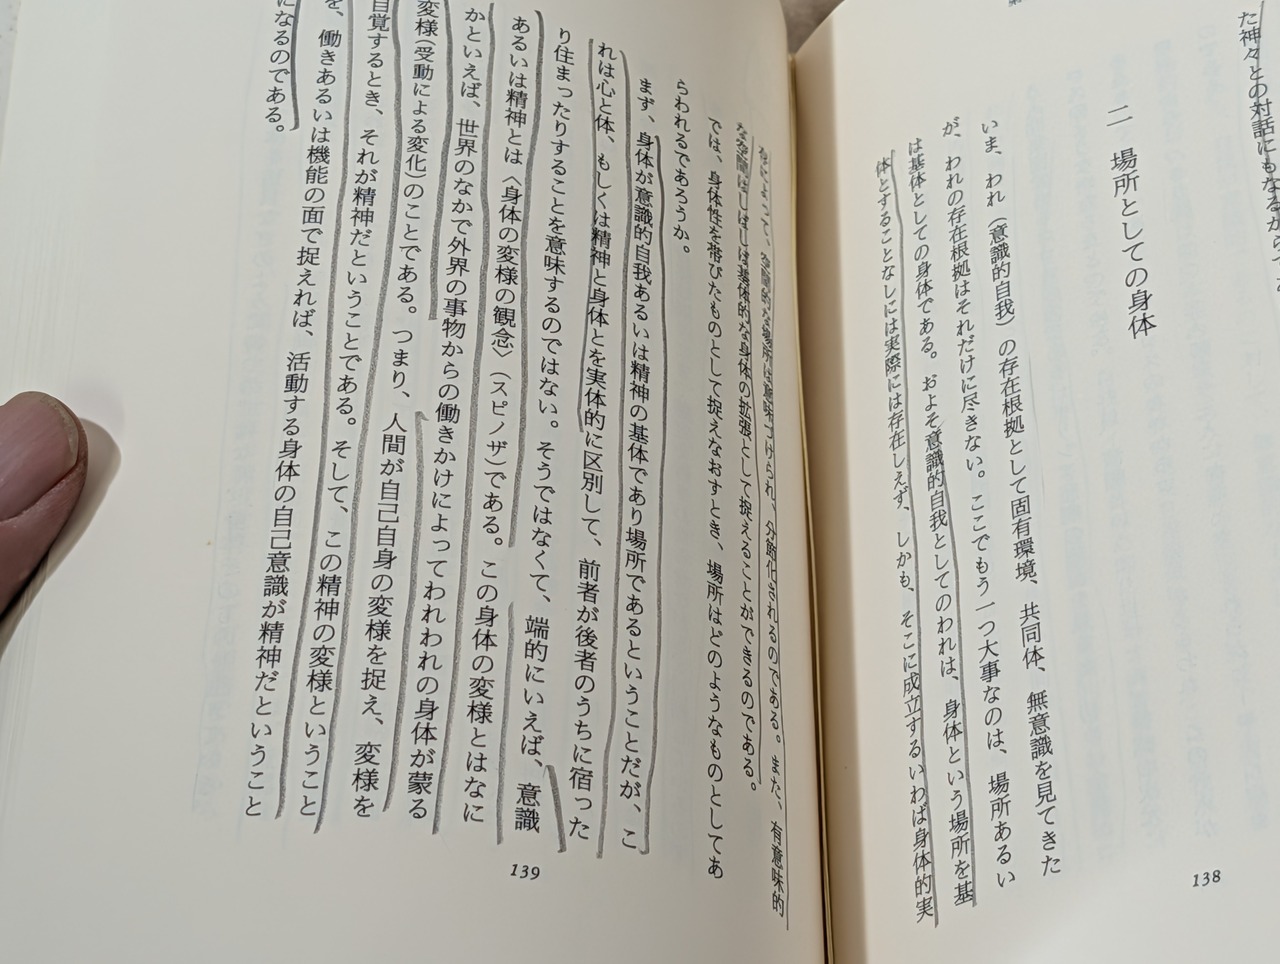 た神々との対話にもなるからで
二　場所としての身体
いま、われ（意識的自我）の存在根拠として固有環境、共同体、無意識を見てきた
が、われの存在根拠はそれだけに尽きない。ここでもう一つ大事なのは、場所あるい
は基体としての身体である。およそ意識的自我としてのわれは、身体という場所を基
体とすることなしには実際には存在しえず、しかも、そこに成立するいわば身体的実
138
存によって、空間的な場所は意味づけられ、分節化されるのである。また、有意味的
な空間はしばしば基体的な身体の拡張として捉えることができるのである。
では、身体性を帯びたものとして捉えなおすとき、場所はどのようなものとしてあ
らわれるであろうか。
まず、身体が意識的自我あるいは精神の基体であり場所であるということだが、こ
れは心と体、もしくは精神と身体とを実体的に区別して、前者が後者のうちに宿った
り住まったりすることを意味するのではない。そうではなくて、端的にいえば、意識
あるいは精神とは〈身体の変様の観念〉（スピノザ）である。この身体の変様とはなに
かといえば、世界のなかで外界の事物からの働きかけによってわれわれの身体が蒙る
変様（受動による変化）のことである。つまり、人間が自己自身の変様を捉え、変様を
自覚するとき、それが精神だということである。そして、この精神の変様ということ
を、働きあるいは機能の面で捉えれば、活動する身体の自己意識が精神だということ
になるのである。
139